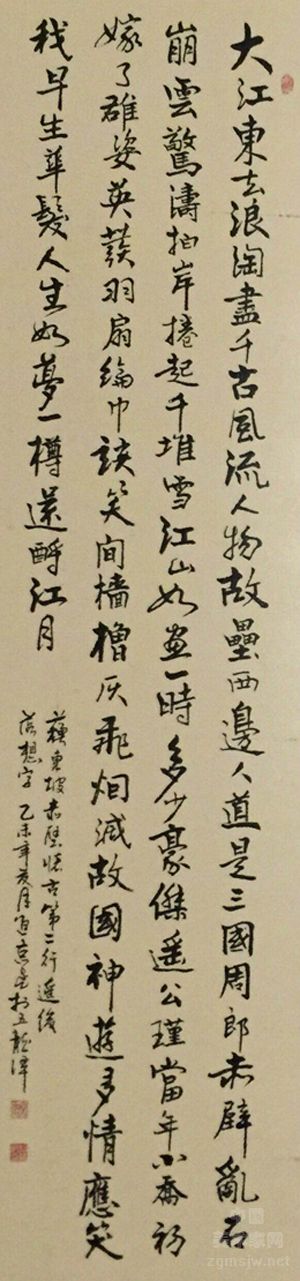 大江東去浪淘盡千古風流人物故壘西邊人道是三國周郎赤壁亂石
崩雲驚濤拍岸捲起千堆雪江山如畫一時多少豪傑遥公瑾當年小喬初
嫁了雄姿英發羽扇綸巾談笑間檣櫓灰飛烟滅故國神遊多情應笑
我早生華髮人生如夢一樽還酹江月
蘇東坡赤壁懷古第二行遥後
落想字乙未年亥月
zgmsjw.net